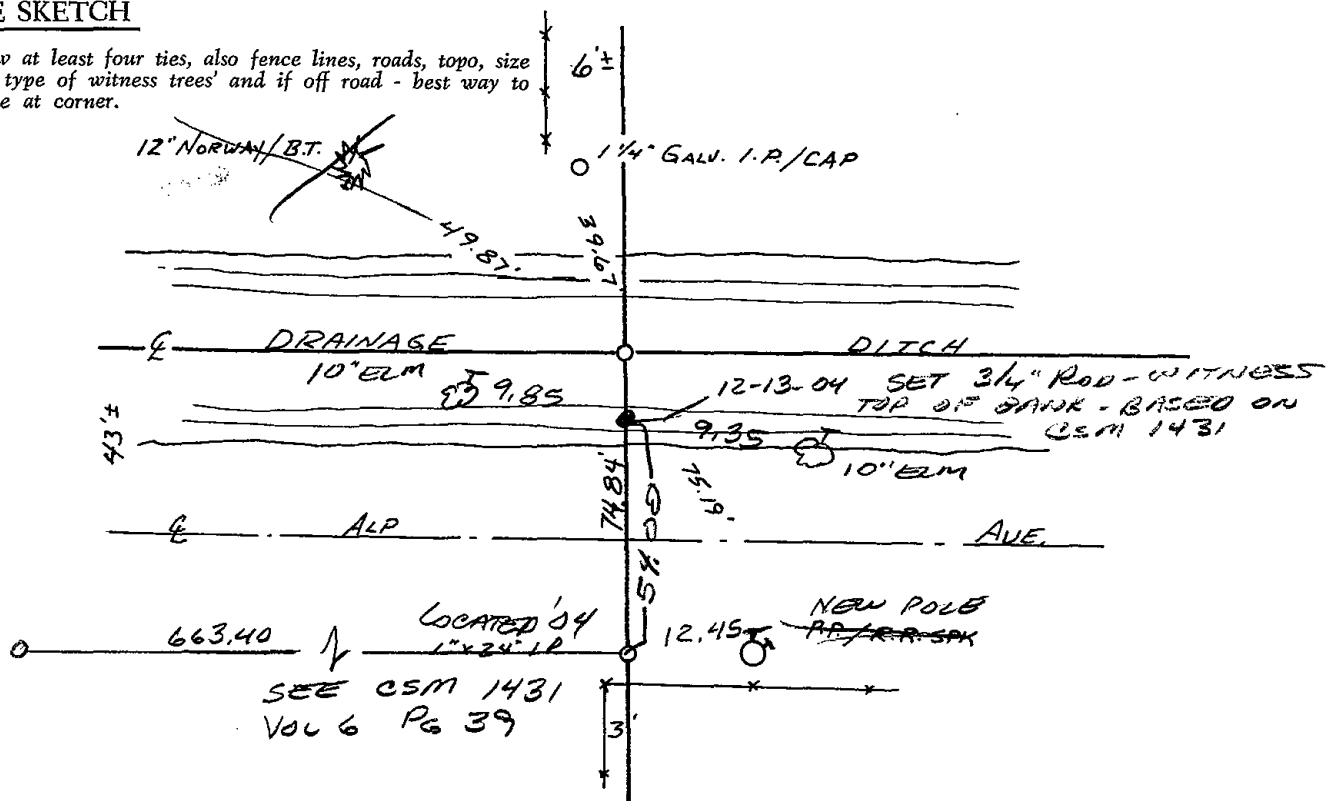 E SKETCH
w at least four ties, also fence lines, roads, topo, size
type of witness trees' and if off road - best way to
e at corner.
6'±
12" NORWAY/B.T.
1 1/4" GALV. I.P./CAP
49.87'
39.67'
℄ DRAINAGE DITCH
10" ELM
9.85
12-13-04 SET 3/4" ROD - WITNESS
TOP OF BANK - BASED ON
CSM 1431
43'±
9.35
10" ELM
74.84'
75.19'
54.00
℄ ALP AVE.
663.40
LOCATED '04
1"x24" IP
12.45
NEW POLE
P.P./R.R. SPK
SEE CSM 1431
VOL 6 PG 39
3'